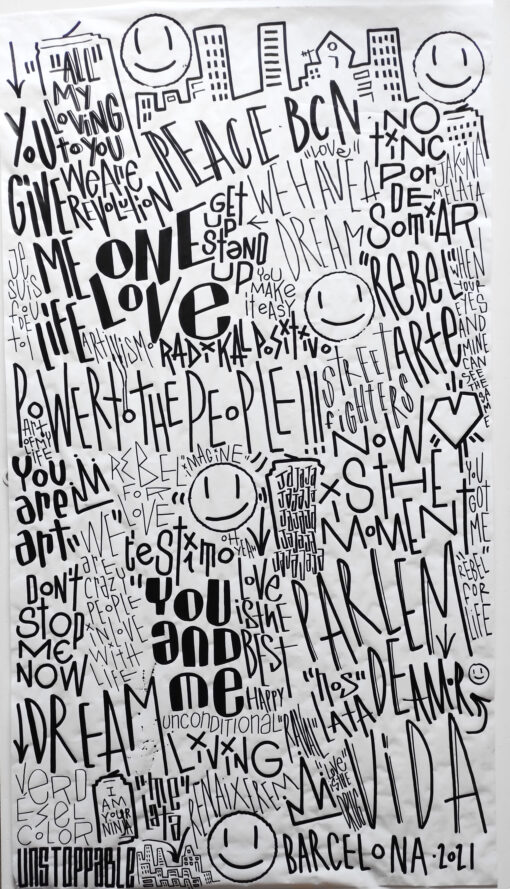 "ALL"
MY
LOVING
to YOU
PEACE·BCN
NO
tiNC
POR
DE
SOMIAR
JAKNA
MELATA
YOU
GIVE
ME
LIFE
We ARE
REVOLUTION
GET
UP
StaND
UP
"LOVE"
WE HAVE A
DREAM
Je
SUIS
FOU DE
toi
ONE
LOVE
YOU
MAKE
it EASY
"REBEL"
ARTE
WHEN
YOUR
EYES
AND
MINE
CAN
SEE
THE
SAME
ARTIVISMO
RADIKAL POSITIVO
STREET
FIGHTERS
POWER TO THE PEOPLE!!!
ART
OF MY
LIFE
YOU
are
art
REBEL
FOR
LOVE
IMAGINE
NOW
iS THE
MOMENT
YOU
GOT
ME
JaJaJa
"WE"
are
CRAZY
PEOPLE
iN LOVE
WITH
LIFE
testimo
OH
YEAH
DON'T
STOP
ME
NOW
"YOU
AND
Me
LOVE
iS THE
BEST
PARLEM
DEAMOR
"REBEL"
FOR
LIFE
HAPPY
"NOS"
LATA
DREAM
UNCONDITIONAL
LIVING
RAVAL
ViDA
VERD
ESEL
COLOR
I
AM
YOUR
NINJA
"Me"
lata
RENAIXEREM
"LOVE"
IS THE
DRUG
UNSTOPPABLE
BARCELONA·2021